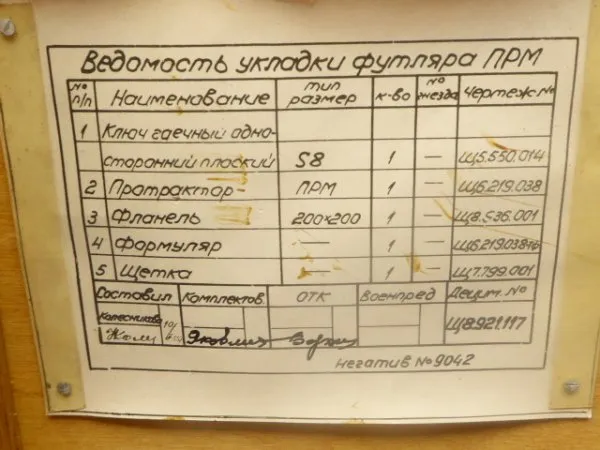 Ведомость укладки футляра ПРМ
№ п/п Наименование тип размер к-во № гнезда Чертеж №
1 Ключ гаечный одно-
сторонний плоский S8 1 — Щ5.550.014
2 Протрактор ПРМ 1 — Щ6.219.038
3 Фланель 200×200 1 — Щ8.536.001
4 Формуляр — 1 — Щ6.219.038
5 Щетка — 1 — Щ7.799.001
Составил Комплектов. ОТК Военпред Децим. №
Колесникова
Щ8.921.117
Негатив № 9042